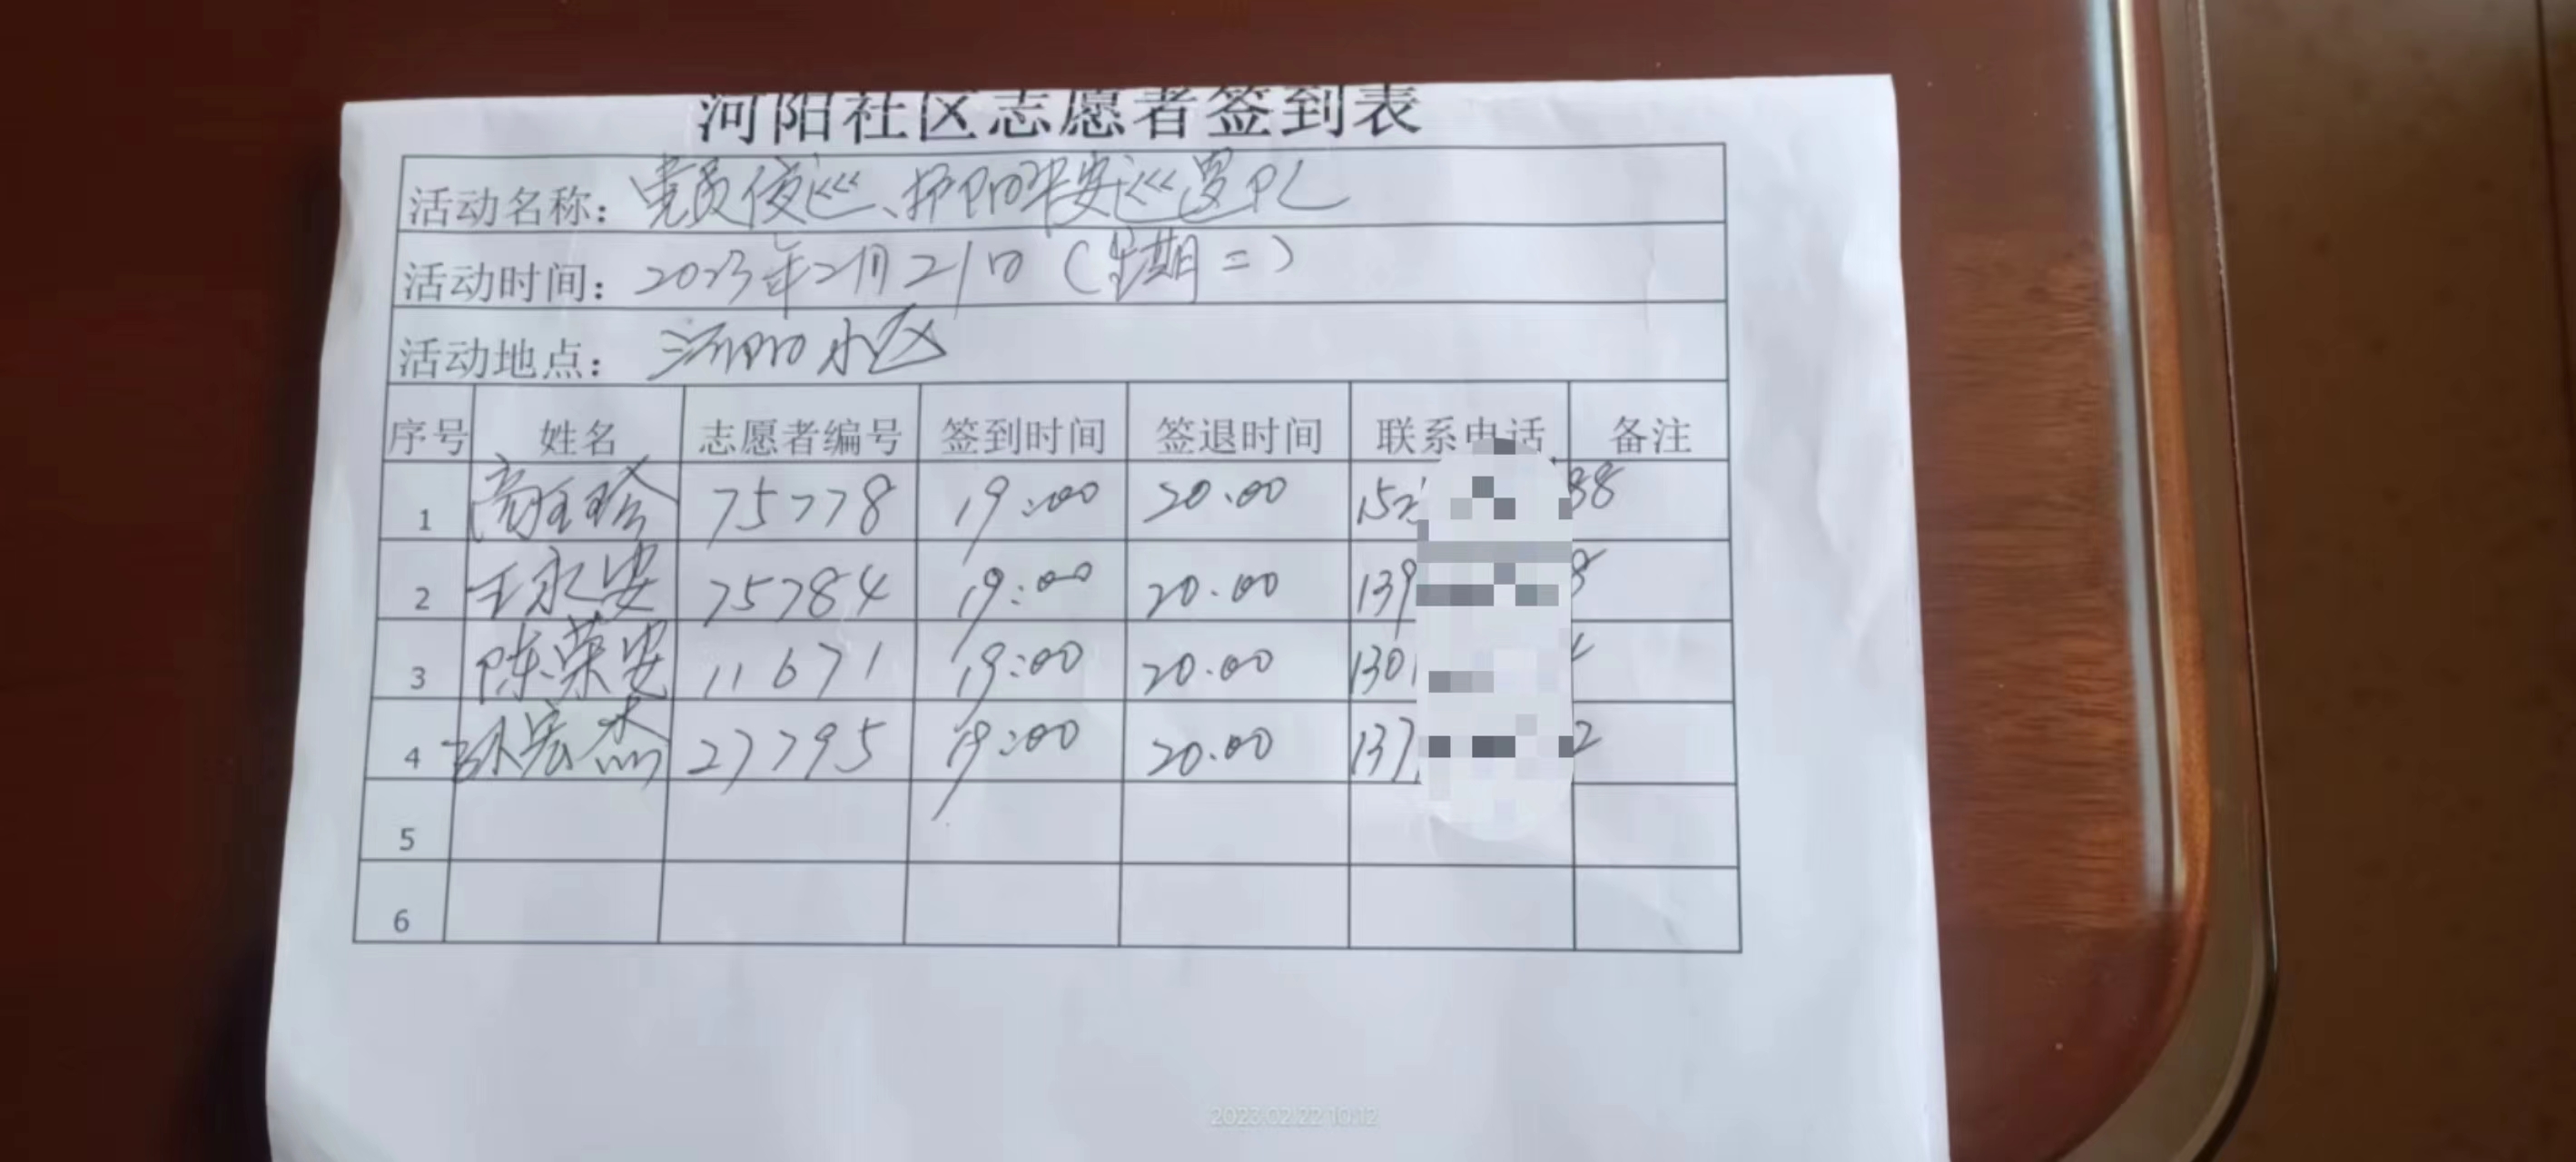 河阳社区志愿者签到表
活动名称：党员夜巡、河阳平安巡逻队
活动时间：2023年2月21日（星期二）
活动地点：河阳小区
序号 姓名 志愿者编号 签到时间 签退时间 联系电话 备注
1 75778 19:00 20.00 38
2 王永安 75784 19:00 20.00 139 8
3 陈荣安 11671 19:00 20.00 130
4 孙宏杰 27795 19:00 20.00 137 2
5
6
2023.02.22 10:12